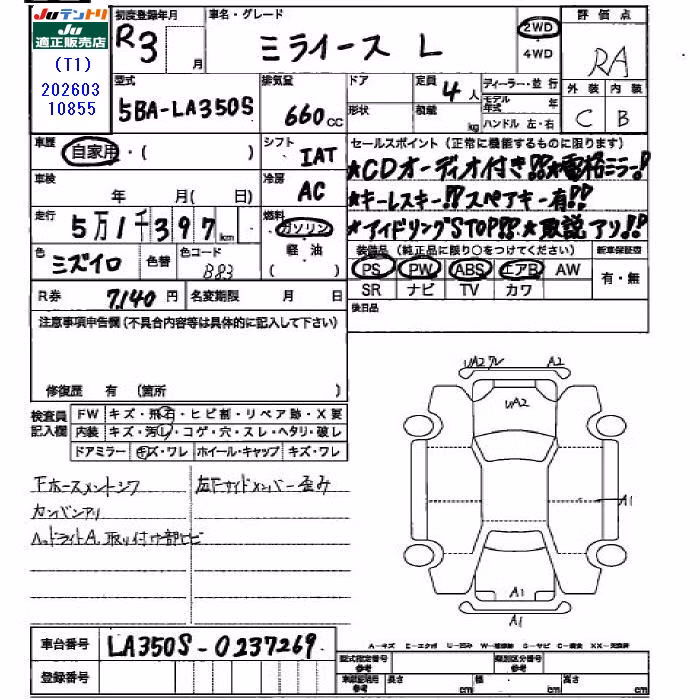 Juテントリ
Ju
適正販売店
(T1)
202603
10855
初度登録年月
R3 月
車名・グレード
ミライース L
2WD
4WD
評価点
RA
外装 内装
C B
型式
5BA-LA350S
排気量
660 cc
ドア
形状
定員 4人
積載 kg
ディーラー・並行
モデル年式 年
ハンドル 左・右
車歴
自家用・( )
シフト
IAT
セールスポイント(正常に機能するものに限ります)
★CDオーディオ付き!!★電格ミラー!!
★キーレスキー!!スペアキー有!!
★アイドリングSTOP!!★取説アリ!!
車検
年 月( 日)
冷房
AC
走行
5万1千397km
燃料
ガソリン
・軽油
( )
色
ミズイロ
色替
色コード
B83
装備品(純正品に限り○をつけてください)
新車保証書
PS PW ABS エアB AW
SR ナビ TV カワ
有・無
R券 7140円
名変期限 月 日
後日品
注意事項申告欄(不具合内容等は具体的に記入して下さい)
修復歴 有 (箇所 )
検査員
記入欄
FW キズ・飛石・ヒビ割・リペア跡・X要
内装 キズ・汚レ・コゲ・穴・スレ・ヘタリ・破レ
ドアミラー キズ・ワレ ホイール・キャップ キズ・ワレ
Fホースメントシワ
左Fサイドメンバー歪み
カンバンアリ
ヘッドライトA.取り付け部ヒビ
UA2ワレ
A2
UA2
A1
A1
A1
車台番号
LA350S-0237269
登録番号
A-キズ
型式指定番号
参考
類別区分番号
参考
車検証記載
参考
長さ cm
幅 cm
高さ cm